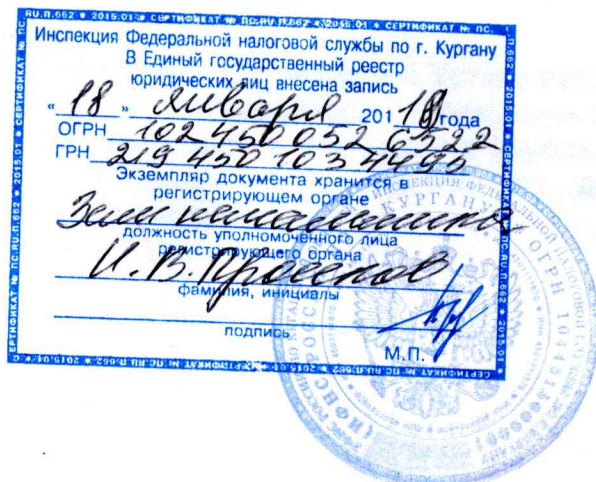 RU.П.662 ✱ 2015.01 ✱ СЕРТИФИКАТ № ПС.RU.П.662 ✱ 2015.01 ✱ СЕРТИФИКАТ № ПС.
Инспекция Федеральной налоговой службы по г. Кургану
В Единый государственный реестр
юридических лиц внесена запись
« 18 » января 2019 года
ОГРН 1024500526522
ГРН 2194501034495
Экземпляр документа хранится в
регистрирующем органе
Зам. начальника
должность уполномоченного лица
регистрирующего органа
фамилия, инициалы
подпись
М.П.